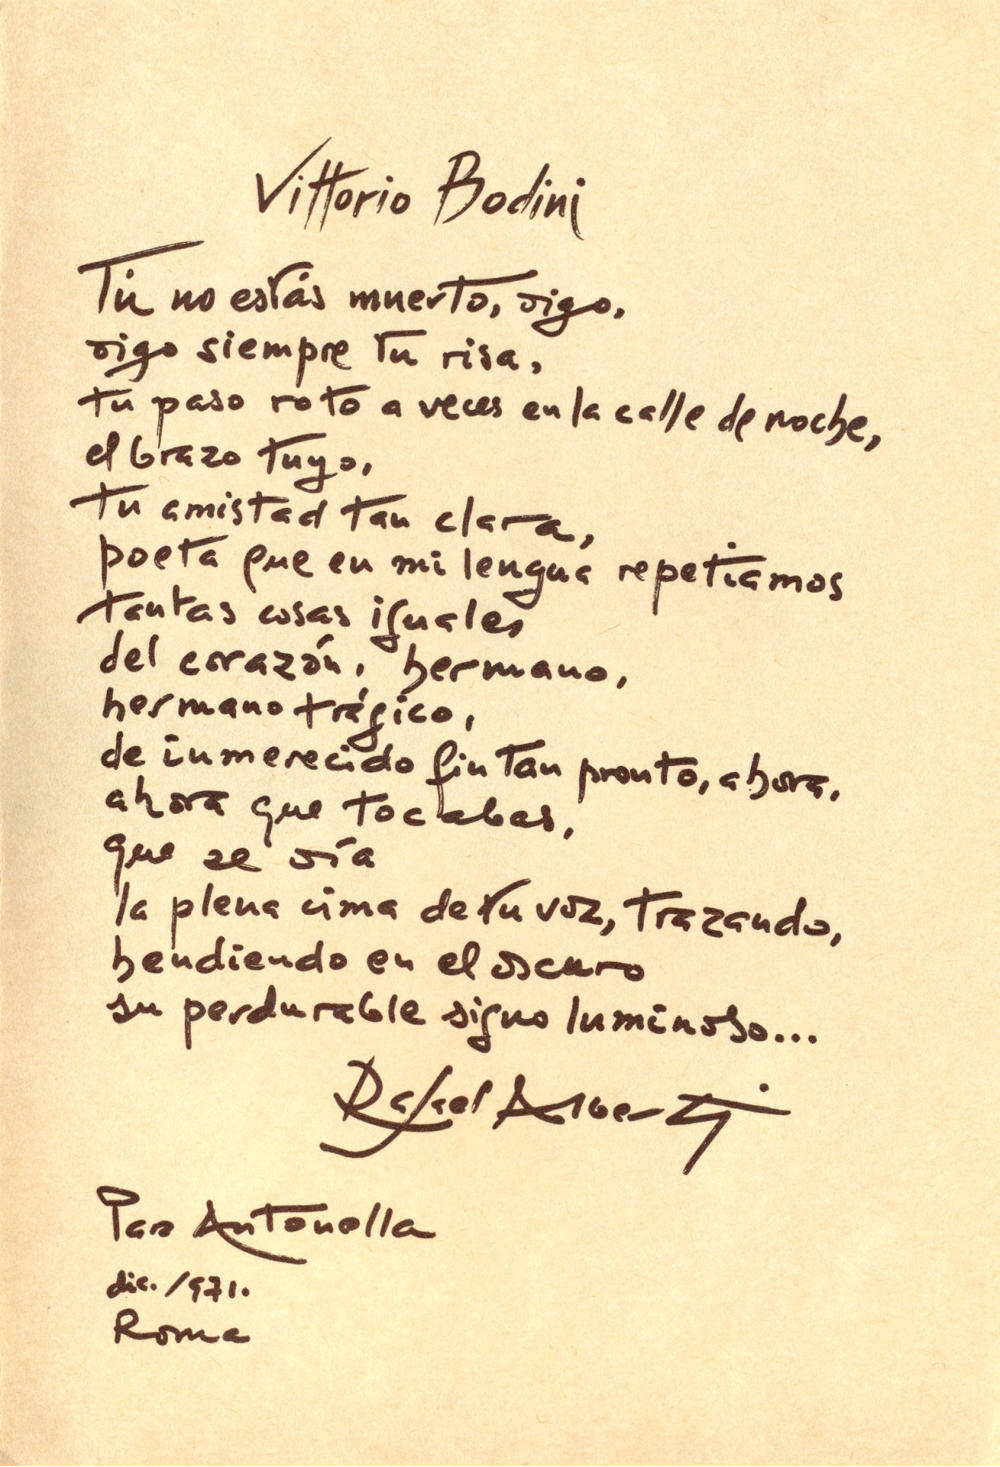 Vittorio Bodini
Tú no estás muerto, oigo,
oigo siempre tu risa,
tu paso roto a veces en la calle de noche,
el brazo tuyo,
tu amistad tan clara,
poeta que en mi lengua repetíamos
tantas cosas iguales
del corazón, hermano,
hermano trágico,
de inmerecido fin tan pronto, ahora,
ahora que tocabas,
que se oía
la plena cima de tu voz, trazando,
hendiendo en el oscuro
su perdurable signo luminoso...
Rafael Alberti
Para Antonella
dic. /971.
Roma